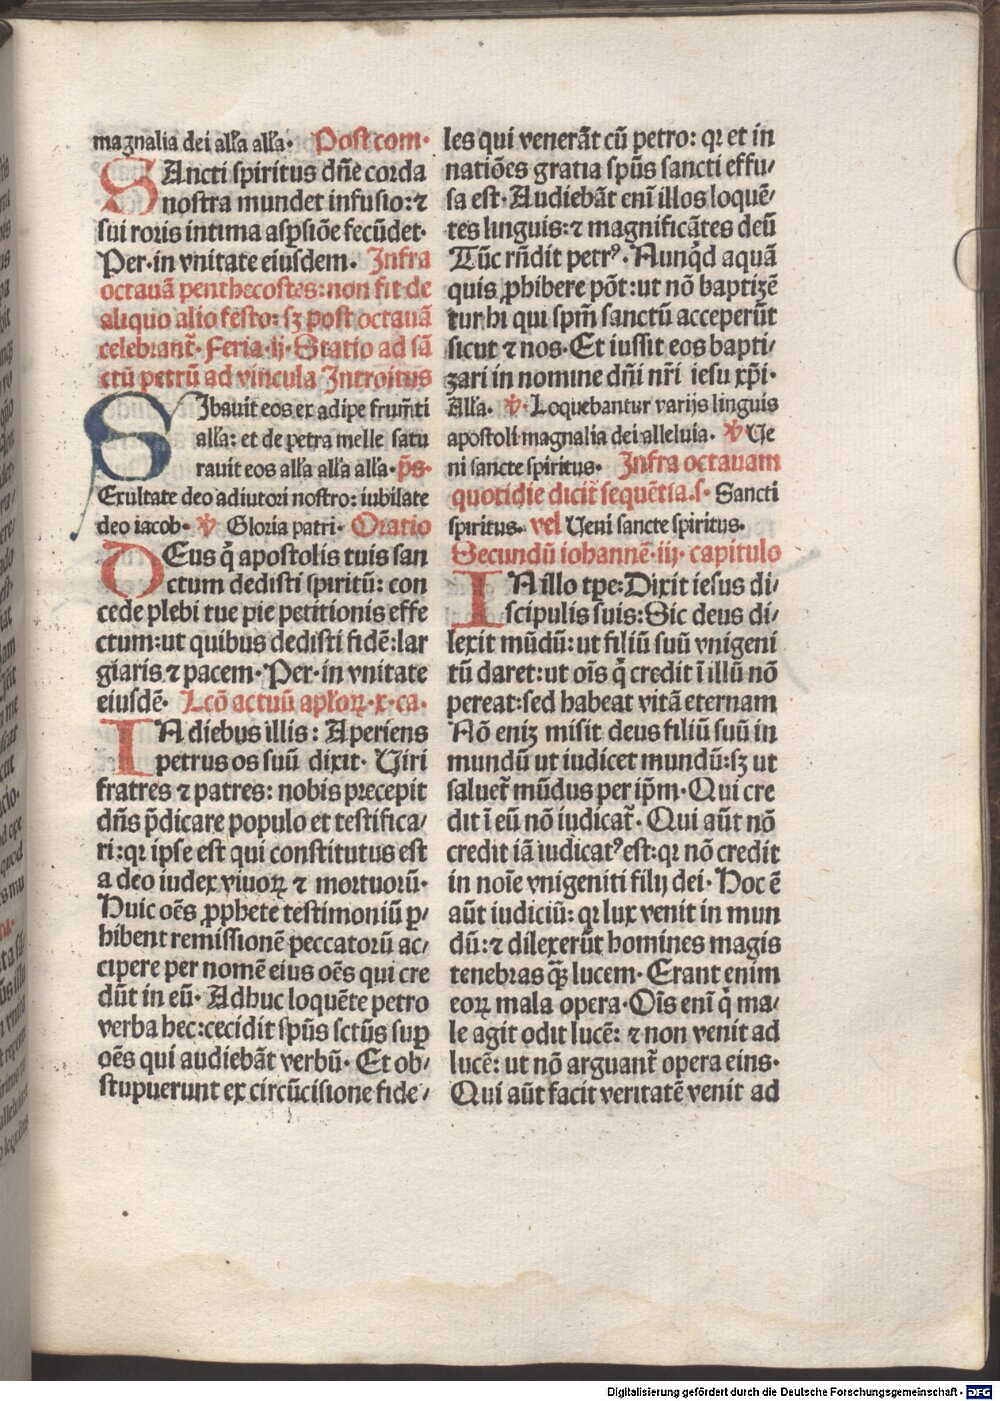 magnalia dei alľa alľa· Post com·
SAncti spiritus dn̄e corda
nostra mundet infusio: ⁊
sui roris intima asꝑsiōe fecūdet·
Per· in vnitate eiusdem· Infra
octauā penthecostes: non fit de
aliquo alio festo: sꝫ post octauā
celebrant̄· Feria· ij· Statio ad sā
ctū petrū ad vincula Introitus
SIbauit eos ex adipe frum̄ti
alľa: et de petra melle satu
rauit eos alľa alľa alľa· p̄s·
Exultate deo adiutori nostro: iubilate
deo iacob· ℣ Gloria patri· Oratio
DEus q̄ apostolis tuis san
ctum dedisti spiritū: con
cede plebi tue pie petitionis effe
ctum: ut quibus dedisti fidē: lar
giaris ⁊ pacem· Per· in vnitate
eiusdē· Lcō actuū apľoꝝ· x· ca·
IN diebus illis: Aperiens
petrus os suū dixit· Viri
fratres ⁊ patres: nobis precepit
dn̄s p̄dicare populo et testifica/
ri: qꝛ ipse est qui constitutus est
a deo iudex viuoꝝ ⁊ mortuorū·
Huic oēs ꝓphete testimoniū ꝑ/
hibent remissionē peccatorū ac/
cipere per nomē eius oēs qui cre
dūt in eū· Adhuc loquēte petro
verba hec: cecidit spūs sctūs suꝑ
oēs qui audiebāt verbū· Et ob/
stupuerunt ex circūcisione fide/
les qui venerāt cū petro: qꝛ et in
natiōes gratia spūs sancti effu/
sa est· Audiebāt enī illos loquē/
tes linguis: ⁊ magnificātes deū
Tūc rn̄dit petrꝰ· Nunqd aquā
quis ꝓhibere pōt: ut nō baptizē
tur hi qui spm̄ sanctū acceperūt
sicut ⁊ nos· Et iussit eos bapti/
zari in nomine dn̄i nr̄i iesu xp̄i·
Alľa· ℣· Loquebantur varijs linguis
apostoli magnalia dei alleluia· ℣ Ve
ni sancte spiritus· Infra octauam
quotidie dicit̄ sequētia· s· Sancti
spiritus· vel Veni sancte spiritus·
Secundū iohannē· iij· capitulo
IN illo tꝑe: Dixit iesus di/
scipulis suis: Sic deus di/
lexit mūdū: ut filiū suū vnigeni
tū daret: ut oīs q̄ credit ī illū nō
pereat: sed habeat vitā eternam
Nō eniꝫ misit deus filiū suū in
mundū ut iudicet mundū: sꝫ ut
saluet̄ mūdus per ip̄m· Qui cre
dit ī eū nō iudicat̄· Qui aūt nō
credit iā iudicatꝰ est: qꝛ nō credit
in noīe vnigeniti filij dei· Hoc ē
aūt iudiciū: qꝛ lux venit in mun
dū: ⁊ dilexerūt homines magis
tenebras qꝫ̄ lucem· Erant enim
eoꝝ mala opera· Oīs enī q̄ ma/
le agit odit lucē: ⁊ non venit ad
lucē: ut nō arguant̄ opera eius·
Qui aūt facit veritatē venit ad
Digitalisierung gefördert durch die Deutsche Forschungsgemeinschaft - DFG